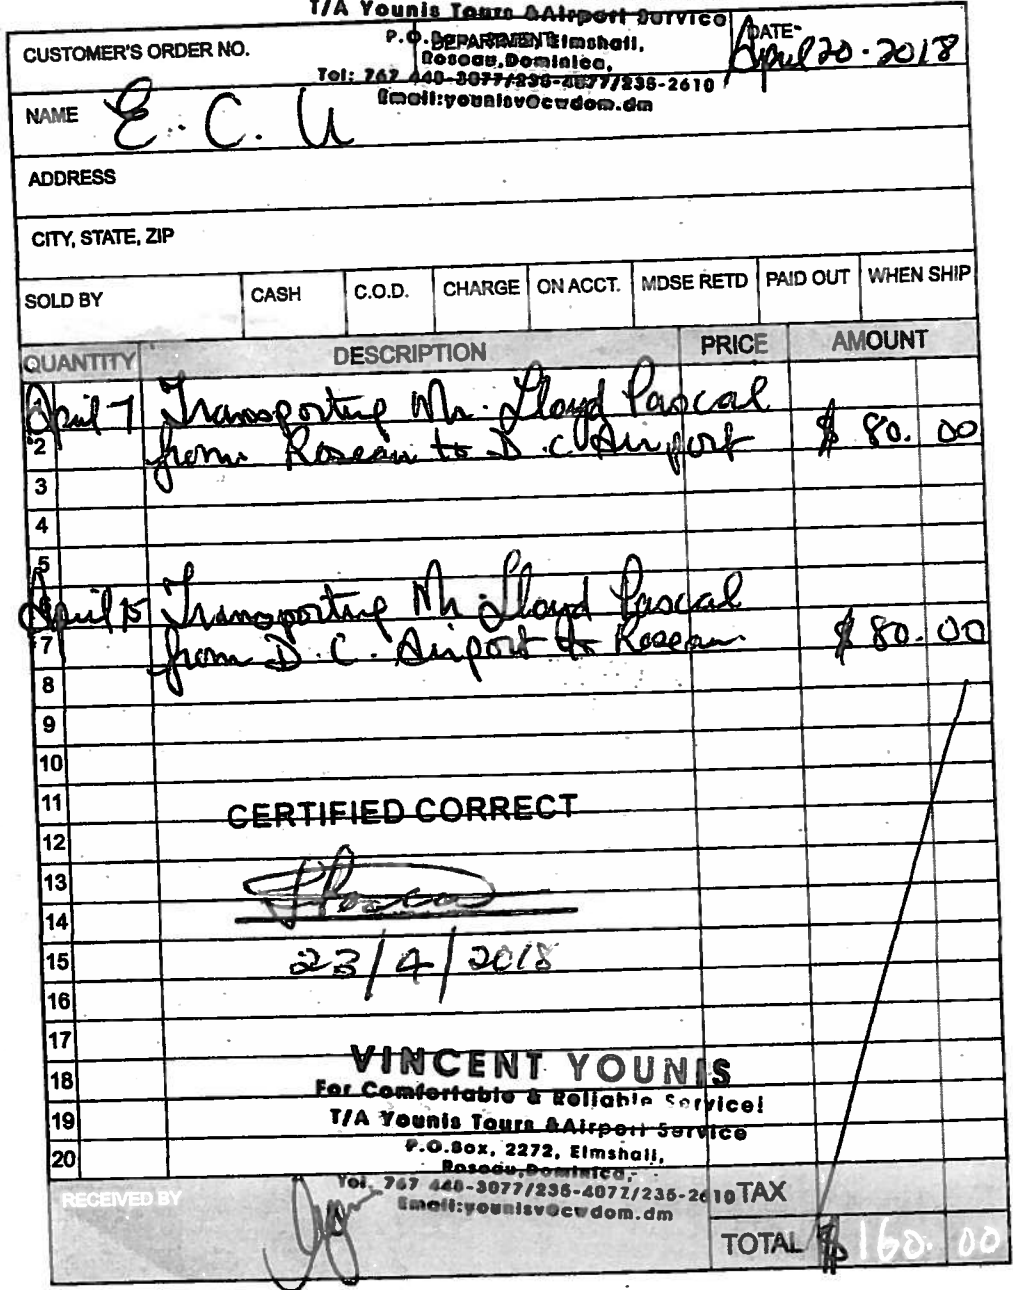 T/A Younis Tours &Airport Service
CUSTOMER'S ORDER NO.
DEPARTMENT
P.O. Elmshall,
Roseau,Dominica,
Tel: 767 440-3077/235-4077/235-2610
Email:younisv@cwdom.dm
DATE
April 20-2018
NAME E.C.U
ADDRESS
CITY, STATE, ZIP
SOLD BY CASH C.O.D. CHARGE ON ACCT. MDSE RETD PAID OUT WHEN SHIP
QUANTITY DESCRIPTION PRICE AMOUNT
April 7 Transporting Mr. Lloyd Pascal
2 from Roseau to D.C. Airport $ 80.00
3
4
5
April 15 Transporting Mr. Lloyd Pascal
7 from D.C. Airport to Roseau $ 80.00
8
9
10
11 CERTIFIED CORRECT
12
13
14
15 23/4/2018
16
17
VINCENT YOUNIS
18 For Comfortable & Reliable Service!
19 T/A Younis Tours &Airport Service
P.O.Box, 2272, Elmshall,
20 Roseau,Dominica,
Tel. 767 440-3077/235-4077/235-2610
Email:younisv@cwdom.dm
RECEIVED BY TAX
TOTAL $ 160.00